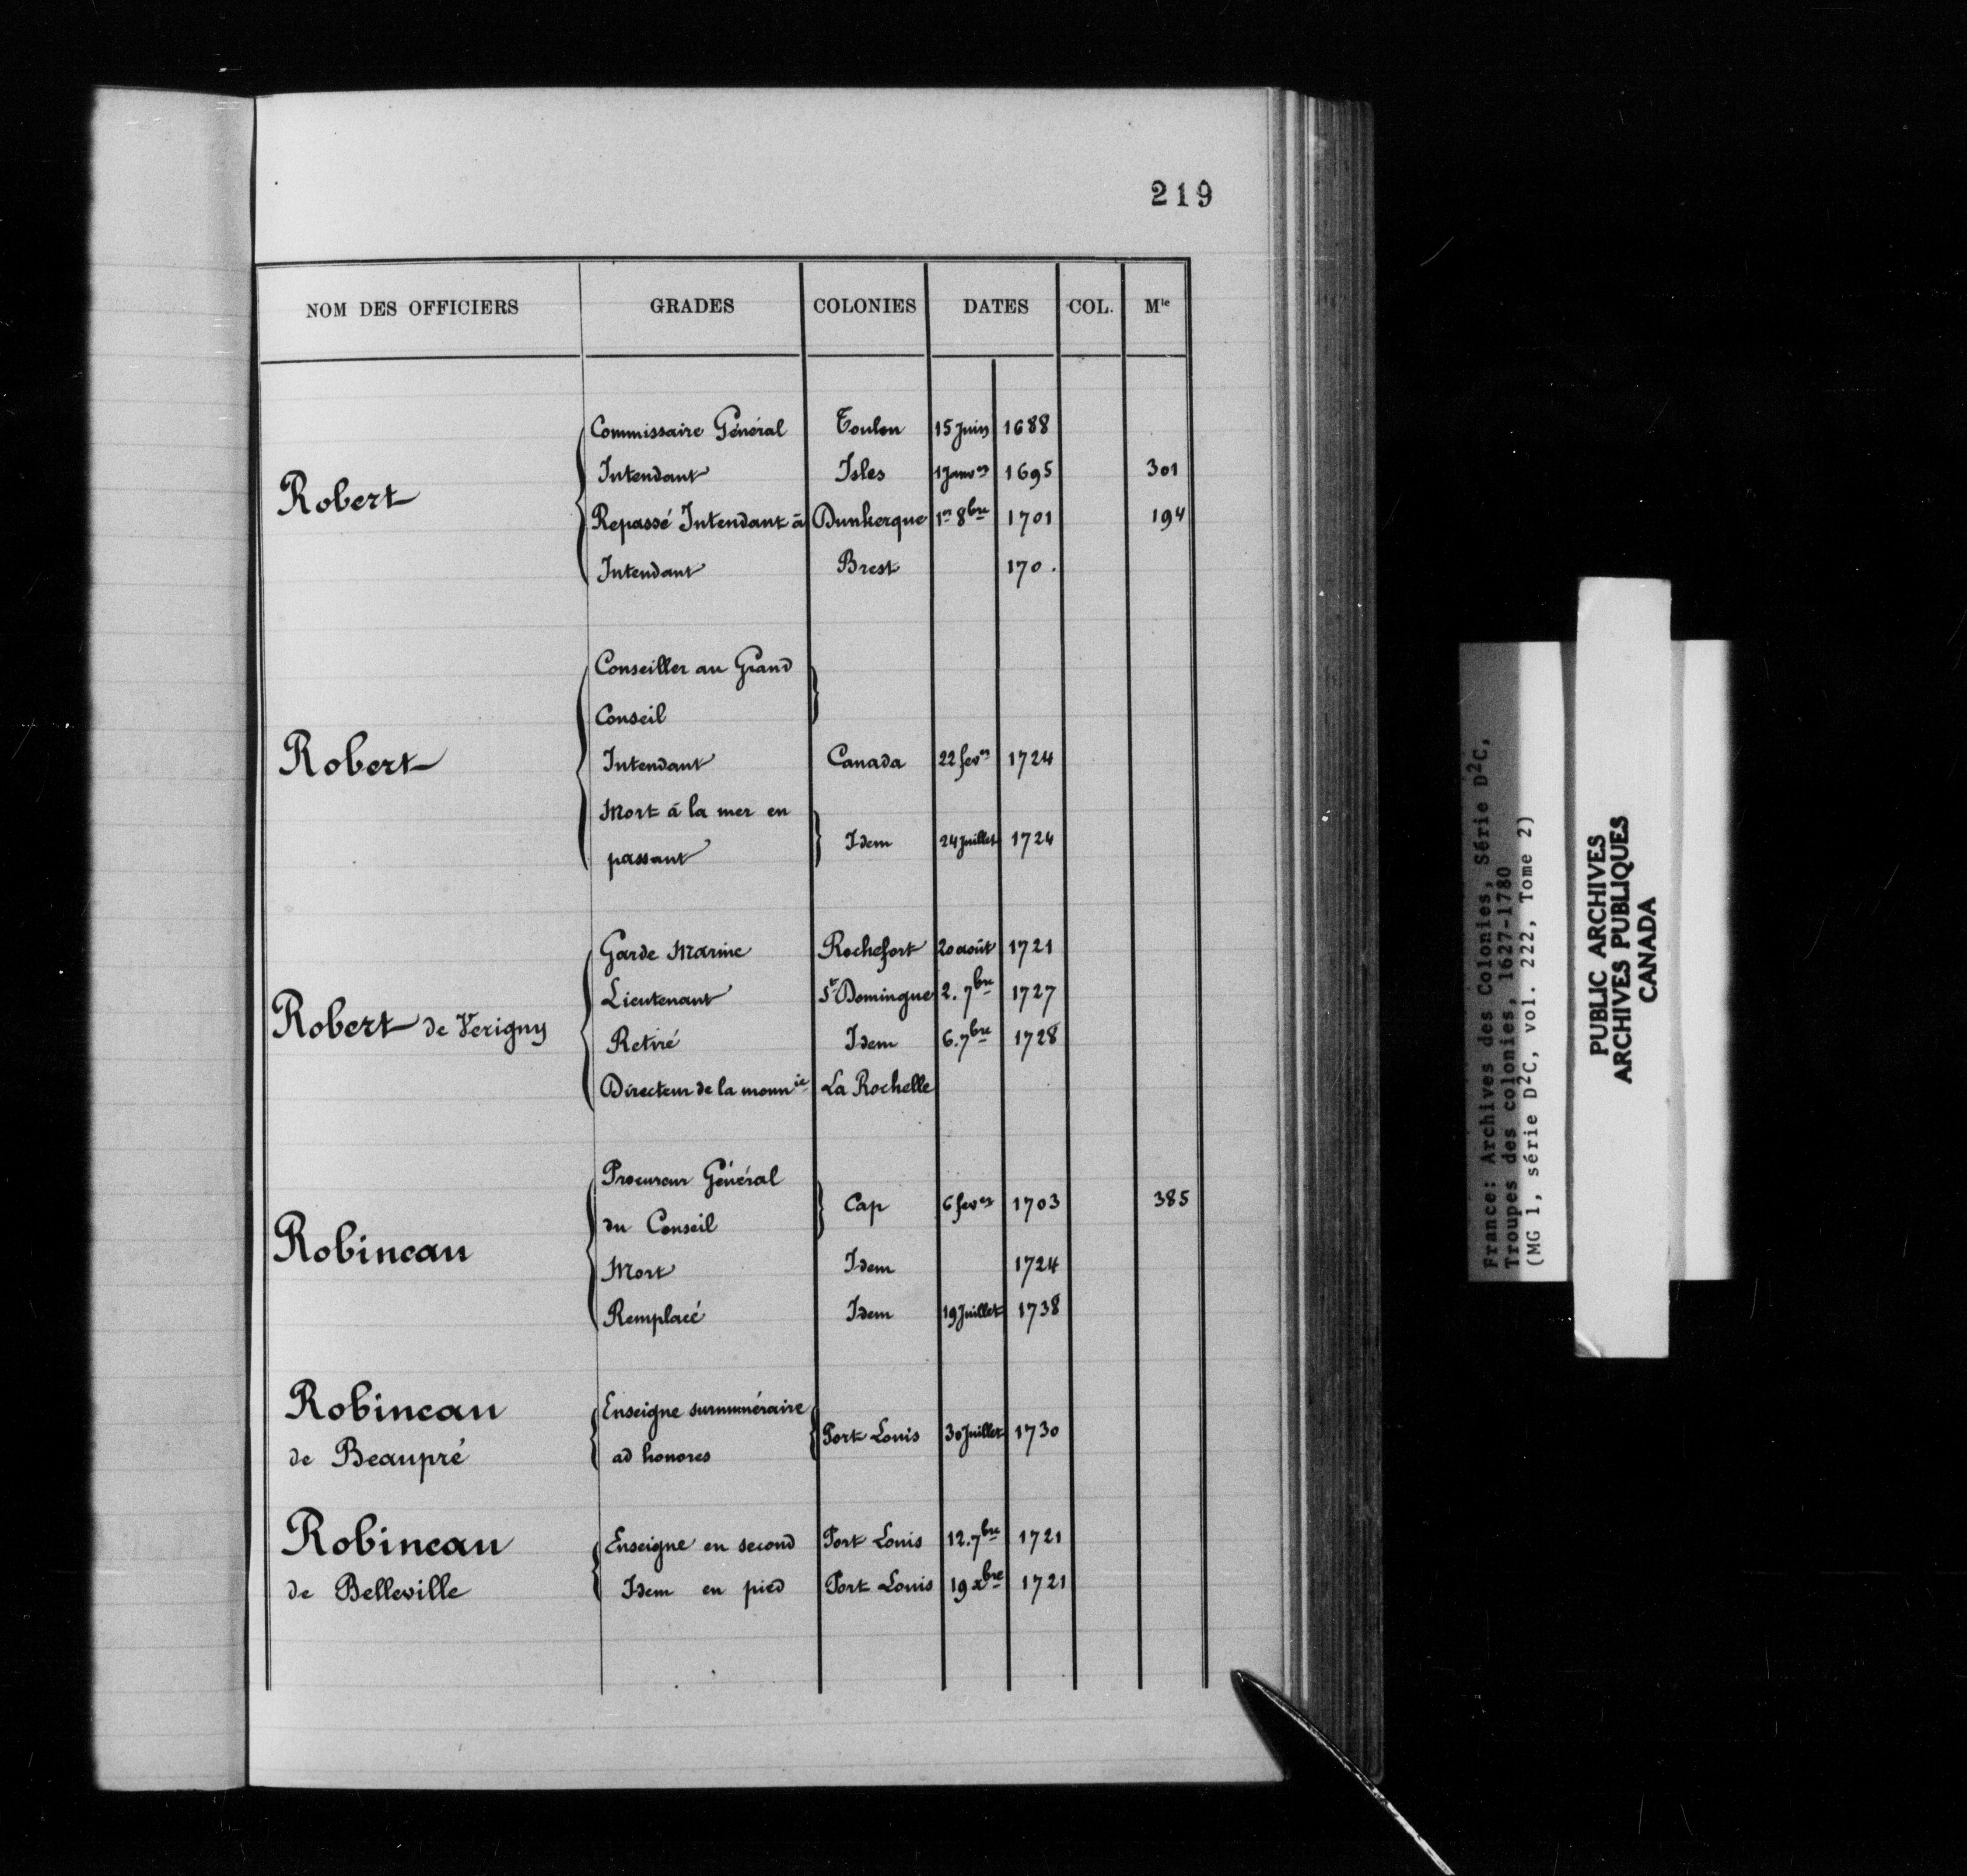 219
NOM DES OFFICIERS GRADES COLONIES DATES COL. Mle
Commissaire Général Toulon 15 Juin 1688
Intendant Isles 1 Janver 1695 301
Robert
Repassé Intendant à Dunkerque 1er 8bre 1701 194
Intendant Brest 170.
Conseiller au Grand
Conseil
Robert Intendant Canada 22 fever 1724
Mort à la mer en
passant Idem 24 Juillet 1724
Garde Marine Rochefort 20 août 1721
Lieutenant St Domingue 2. 7bre 1727
Robert de Verigny Retiré Idem 6. 7bre 1728
Directeur de la monnie La Rochelle
Procureur Général
du Conseil Cap 6 fever 1703 385
Robineau
Mort Idem 1724
Remplacé Idem 19 Juillet 1738
Robineau Enseigne surnuméraire
de Beaupré ad honores Port Louis 30 Juillet 1730
Robineau Enseigne en second Port Louis 12. 7bre 1721
de Belleville Idem en pied Port Louis 19 xbre 1721
France: Archives des Colonies, Série D2C,
Troupes des colonies, 1627-1780
(MG 1, série D2C, vol. 222, Tome 2)
PUBLIC ARCHIVES
ARCHIVES PUBLIQUES
CANADA